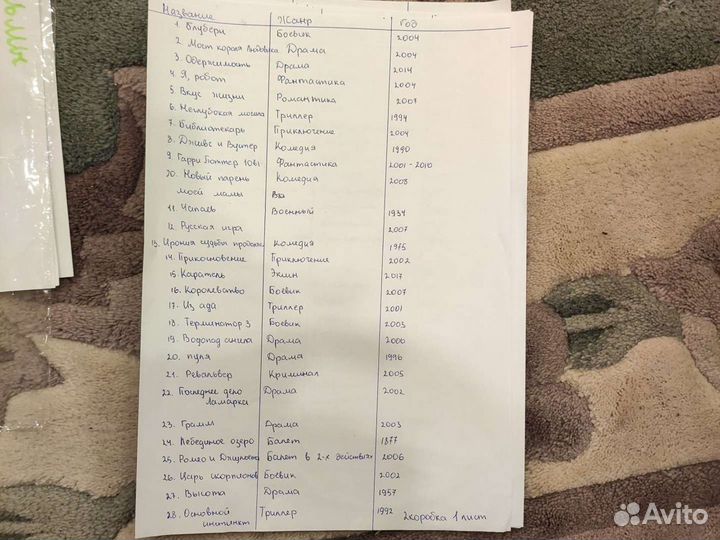 Название Жанр Год
1. Блубери Боевик 2004
2. Мост короля Людовика Драма 2004
3. Одержимость Драма 2014
4. Я, робот Фантастика 2004
5 Вкус жизни Романтика 2007
6. Неглубокая могила Триллер 1994
7. Библиотекарь Приключение 2004
8. Дживс и Вустер Комедия 1990
9. Гарри Поттер 10в1 Фантастика 2001-2010
10. Новый парень Комедия 2008
моей мамы
11. Чапаев Военный 1934
12. Русская игра 2007
13. Ирония судьбы Комедия 1975
14. Прикосновение Приключения 2002
15. Каратель Экшн 2017
16. Королевство Боевик 2007
17. Из ада Триллер 2001
18. Терминатор 3 Боевик 2003
19. Водопад Драма 2000
20. пуля Драма 1996
21. Револьвер Криминал 2005
22. Последнее дело Драма 2002
Ламарка
23. Грамм Драма 2003
24. Лебединое озеро Балет 1877
25. Ромео и Джульетта Балет в 2-х действиях 2006
26. Царь скорпионов Боевик 2002
27. Высота Драма 1957
28. Основной Триллер 1992
инстинкт
2коробка 1 лист
Avito